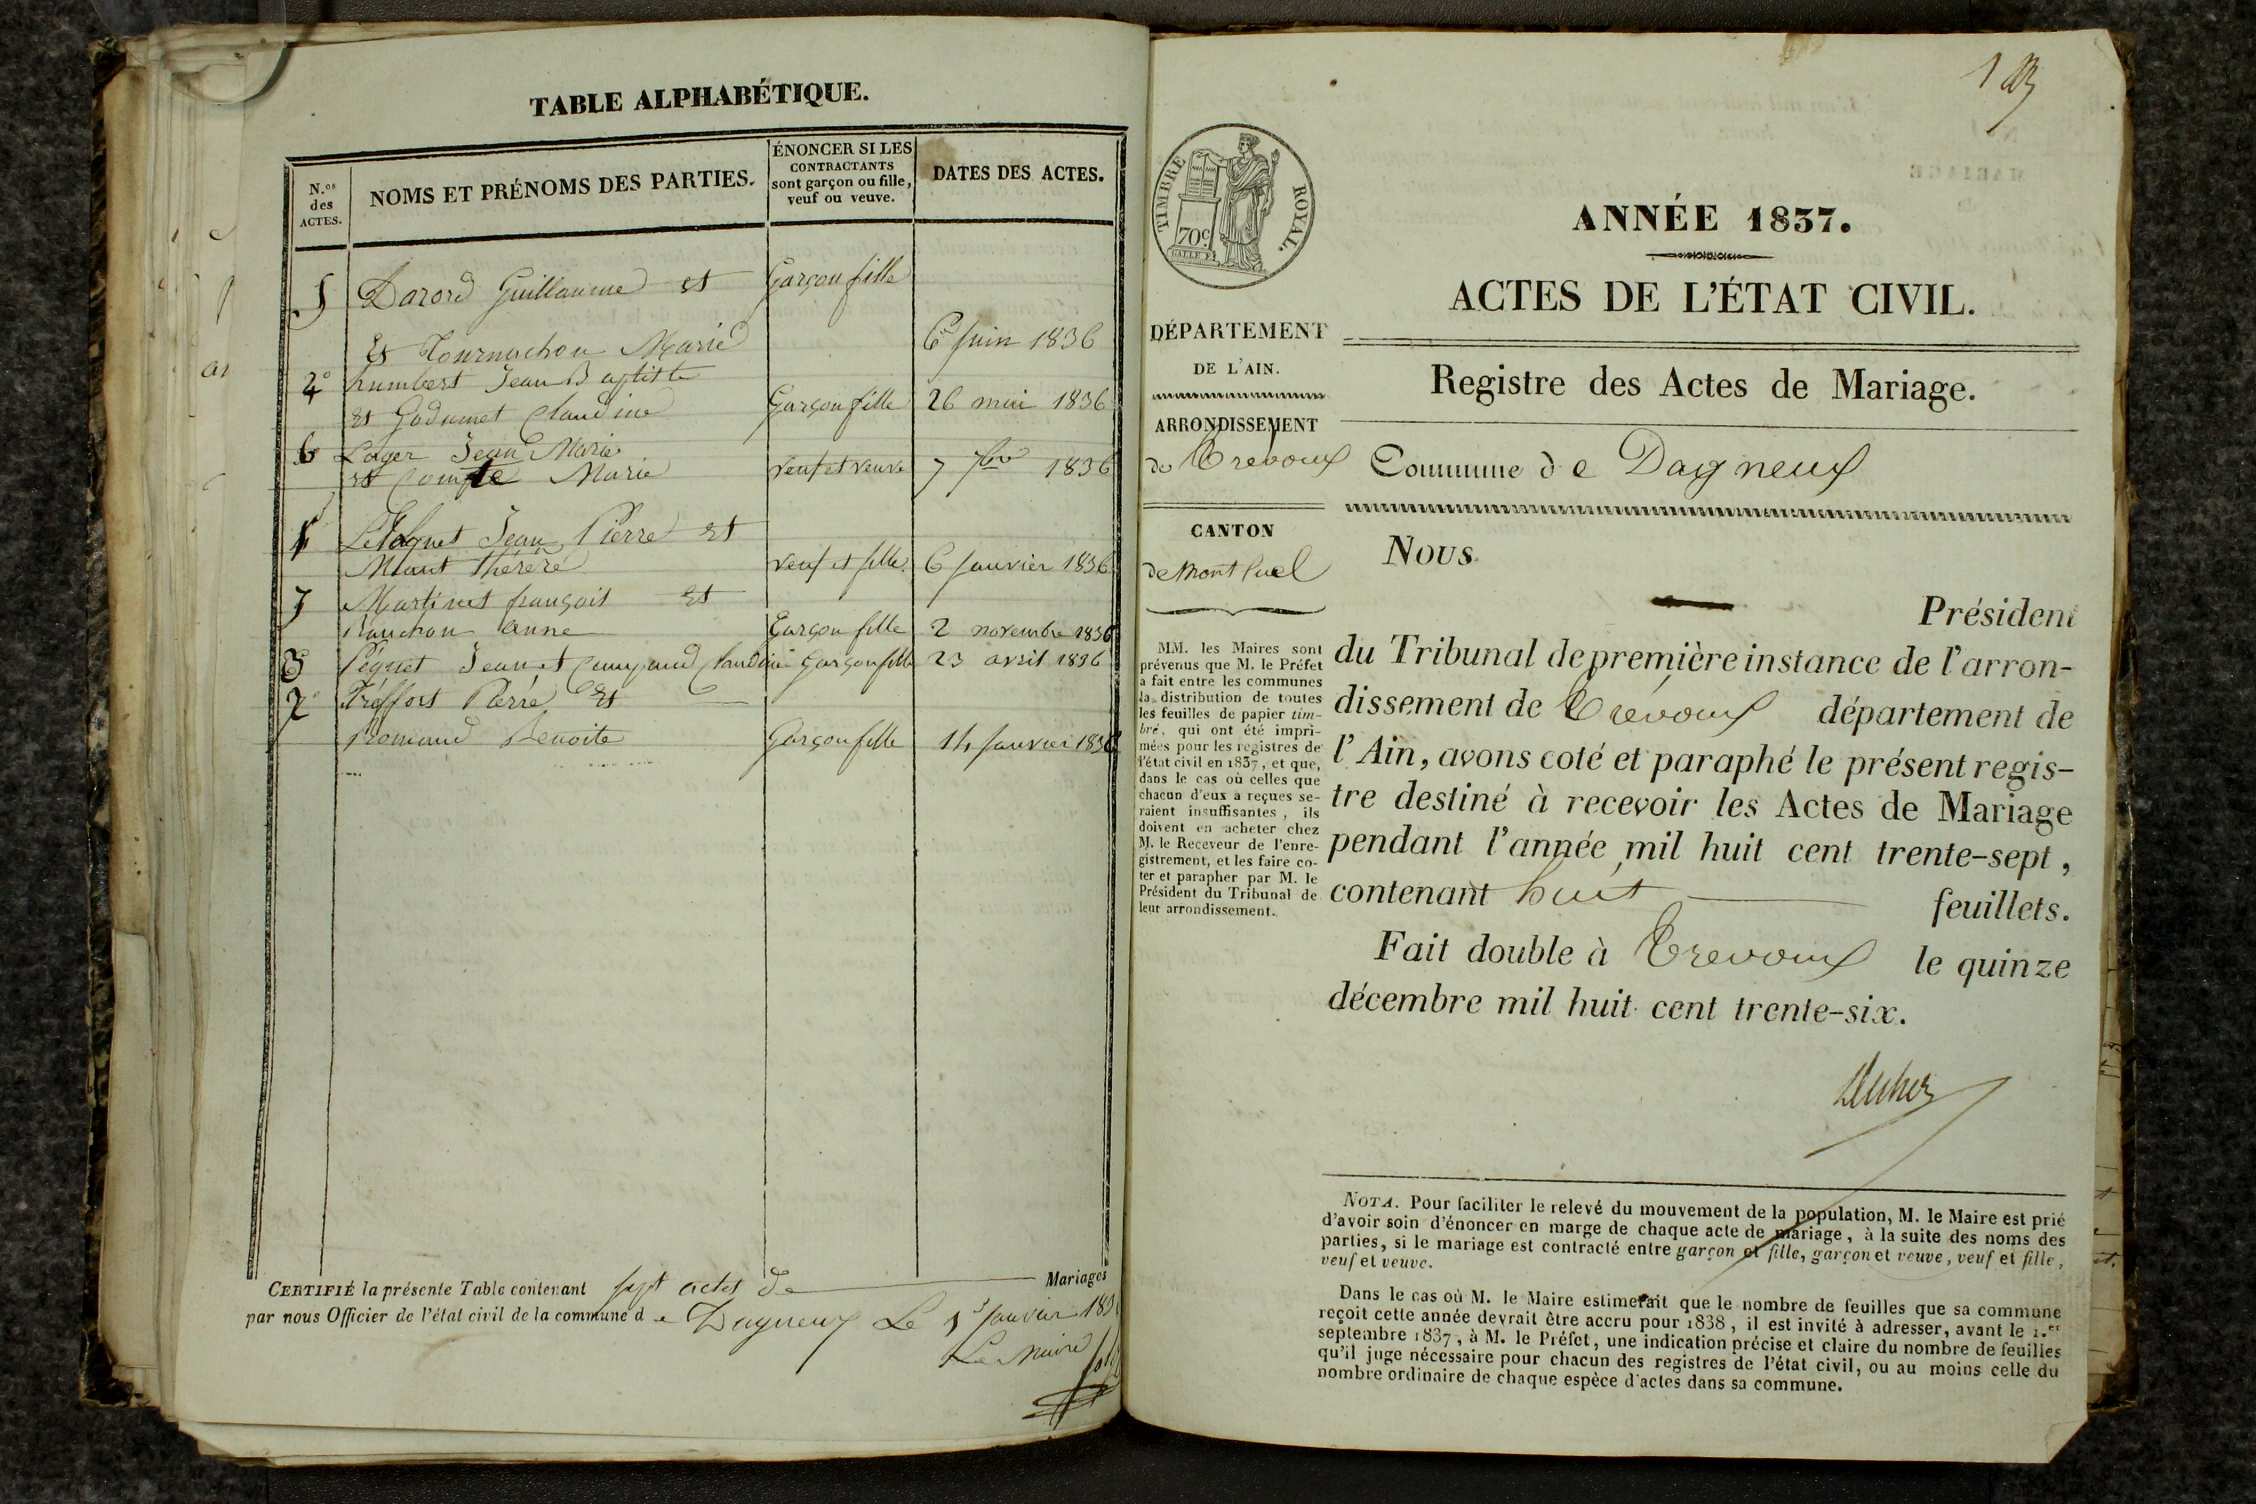 TABLE ALPHABÉTIQUE.
N.os des ACTES.
NOMS ET PRÉNOMS DES PARTIES.
ÉNONCER SI LES CONTRACTANTS sont garçon ou fille, veuf ou veuve.
DATES DES ACTES.
5 Darord Guillaume et Garçon fille
Et Tournachon Marie 6 Juin 1836
4° humbert Jean Baptiste
et Godumet Claudine Garçon fille 26 mai 1836
6 Loger Jean Marie
et Compte Marie veuf et veuve 7 7bre 1836
1 Jean Pierre et
Miant thérèse veuf et fille 6 Janvier 1836
7 Martinet françois et
Ranchon anne Garçon fille 2 novembre 1836
3 Péguet Jean et Claudine Garçon fille 23 avril 1836
2° Tréffort Pierre Et
Romand Benoite Garçon fille 14 Janvier 1836
CERTIFIÉ la présente Table contenant sept actes de Mariages
par nous Officier de l'état civil de la commune d e Dagneux Le 1er Janvier 183
Le Maire
TIMBRE ROYAL.
70c.
DÉPARTEMENT
DE L'AIN.
ARRONDISSEMENT
de Trevoux
CANTON
de Montluel
MM. les Maires sont
prévenus que M. le Préfet
a fait entre les communes
la distribution de toutes
les feuilles de papier tim-
bré, qui ont été impri-
mées pour les registres de
l'état civil en 1837, et que,
dans le cas où celles que
chacun d'eux a reçues se-
raient insuffisantes, ils
doivent en acheter chez
M. le Receveur de l'enre-
gistrement, et les faire co-
ter et parapher par M. le
Président du Tribunal de
leur arrondissement.
ANNÉE 1837.
ACTES DE L'ÉTAT CIVIL.
Registre des Actes de Mariage.
Commune de Dagneux
Nous
Président
du Tribunal de première instance de l'arron-
dissement de Trévoux département de
l'Ain, avons coté et paraphé le présent regis-
tre destiné à recevoir les Actes de Mariage
pendant l'année mil huit cent trente-sept,
contenant huit feuillets.
Fait double à Trevoux le quinze
décembre mil huit cent trente-six.
NOTA. Pour faciliter le relevé du mouvement de la population, M. le Maire est prié
d'avoir soin d'énoncer en marge de chaque acte de mariage, à la suite des noms des
parties, si le mariage est contracté entre garçon et fille, garçon et veuve, veuf et fille,
veuf et veuve.
Dans le cas où M. le Maire estimerait que le nombre de feuilles que sa commune
reçoit cette année devrait être accru pour 1838, il est invité à adresser, avant le 1.er
septembre 1837, à M. le Préfet, une indication précise et claire du nombre de feuilles
qu'il juge nécessaire pour chacun des registres de l'état civil, ou au moins celle du
nombre ordinaire de chaque espèce d'actes dans sa commune.